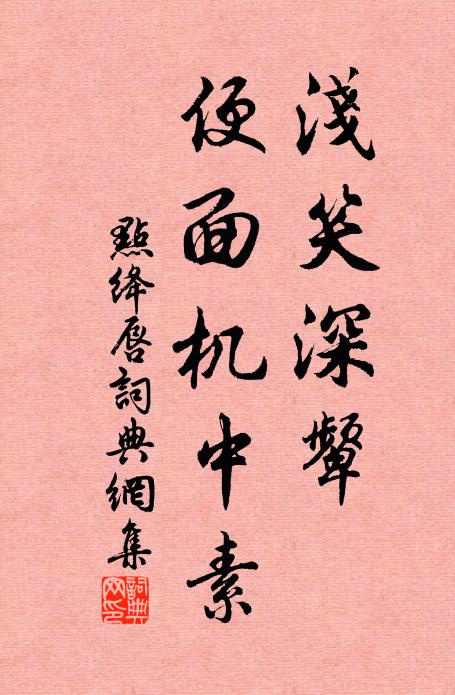 淺笑深顰
便面机中素
點絳唇詞典網集
詞典网印